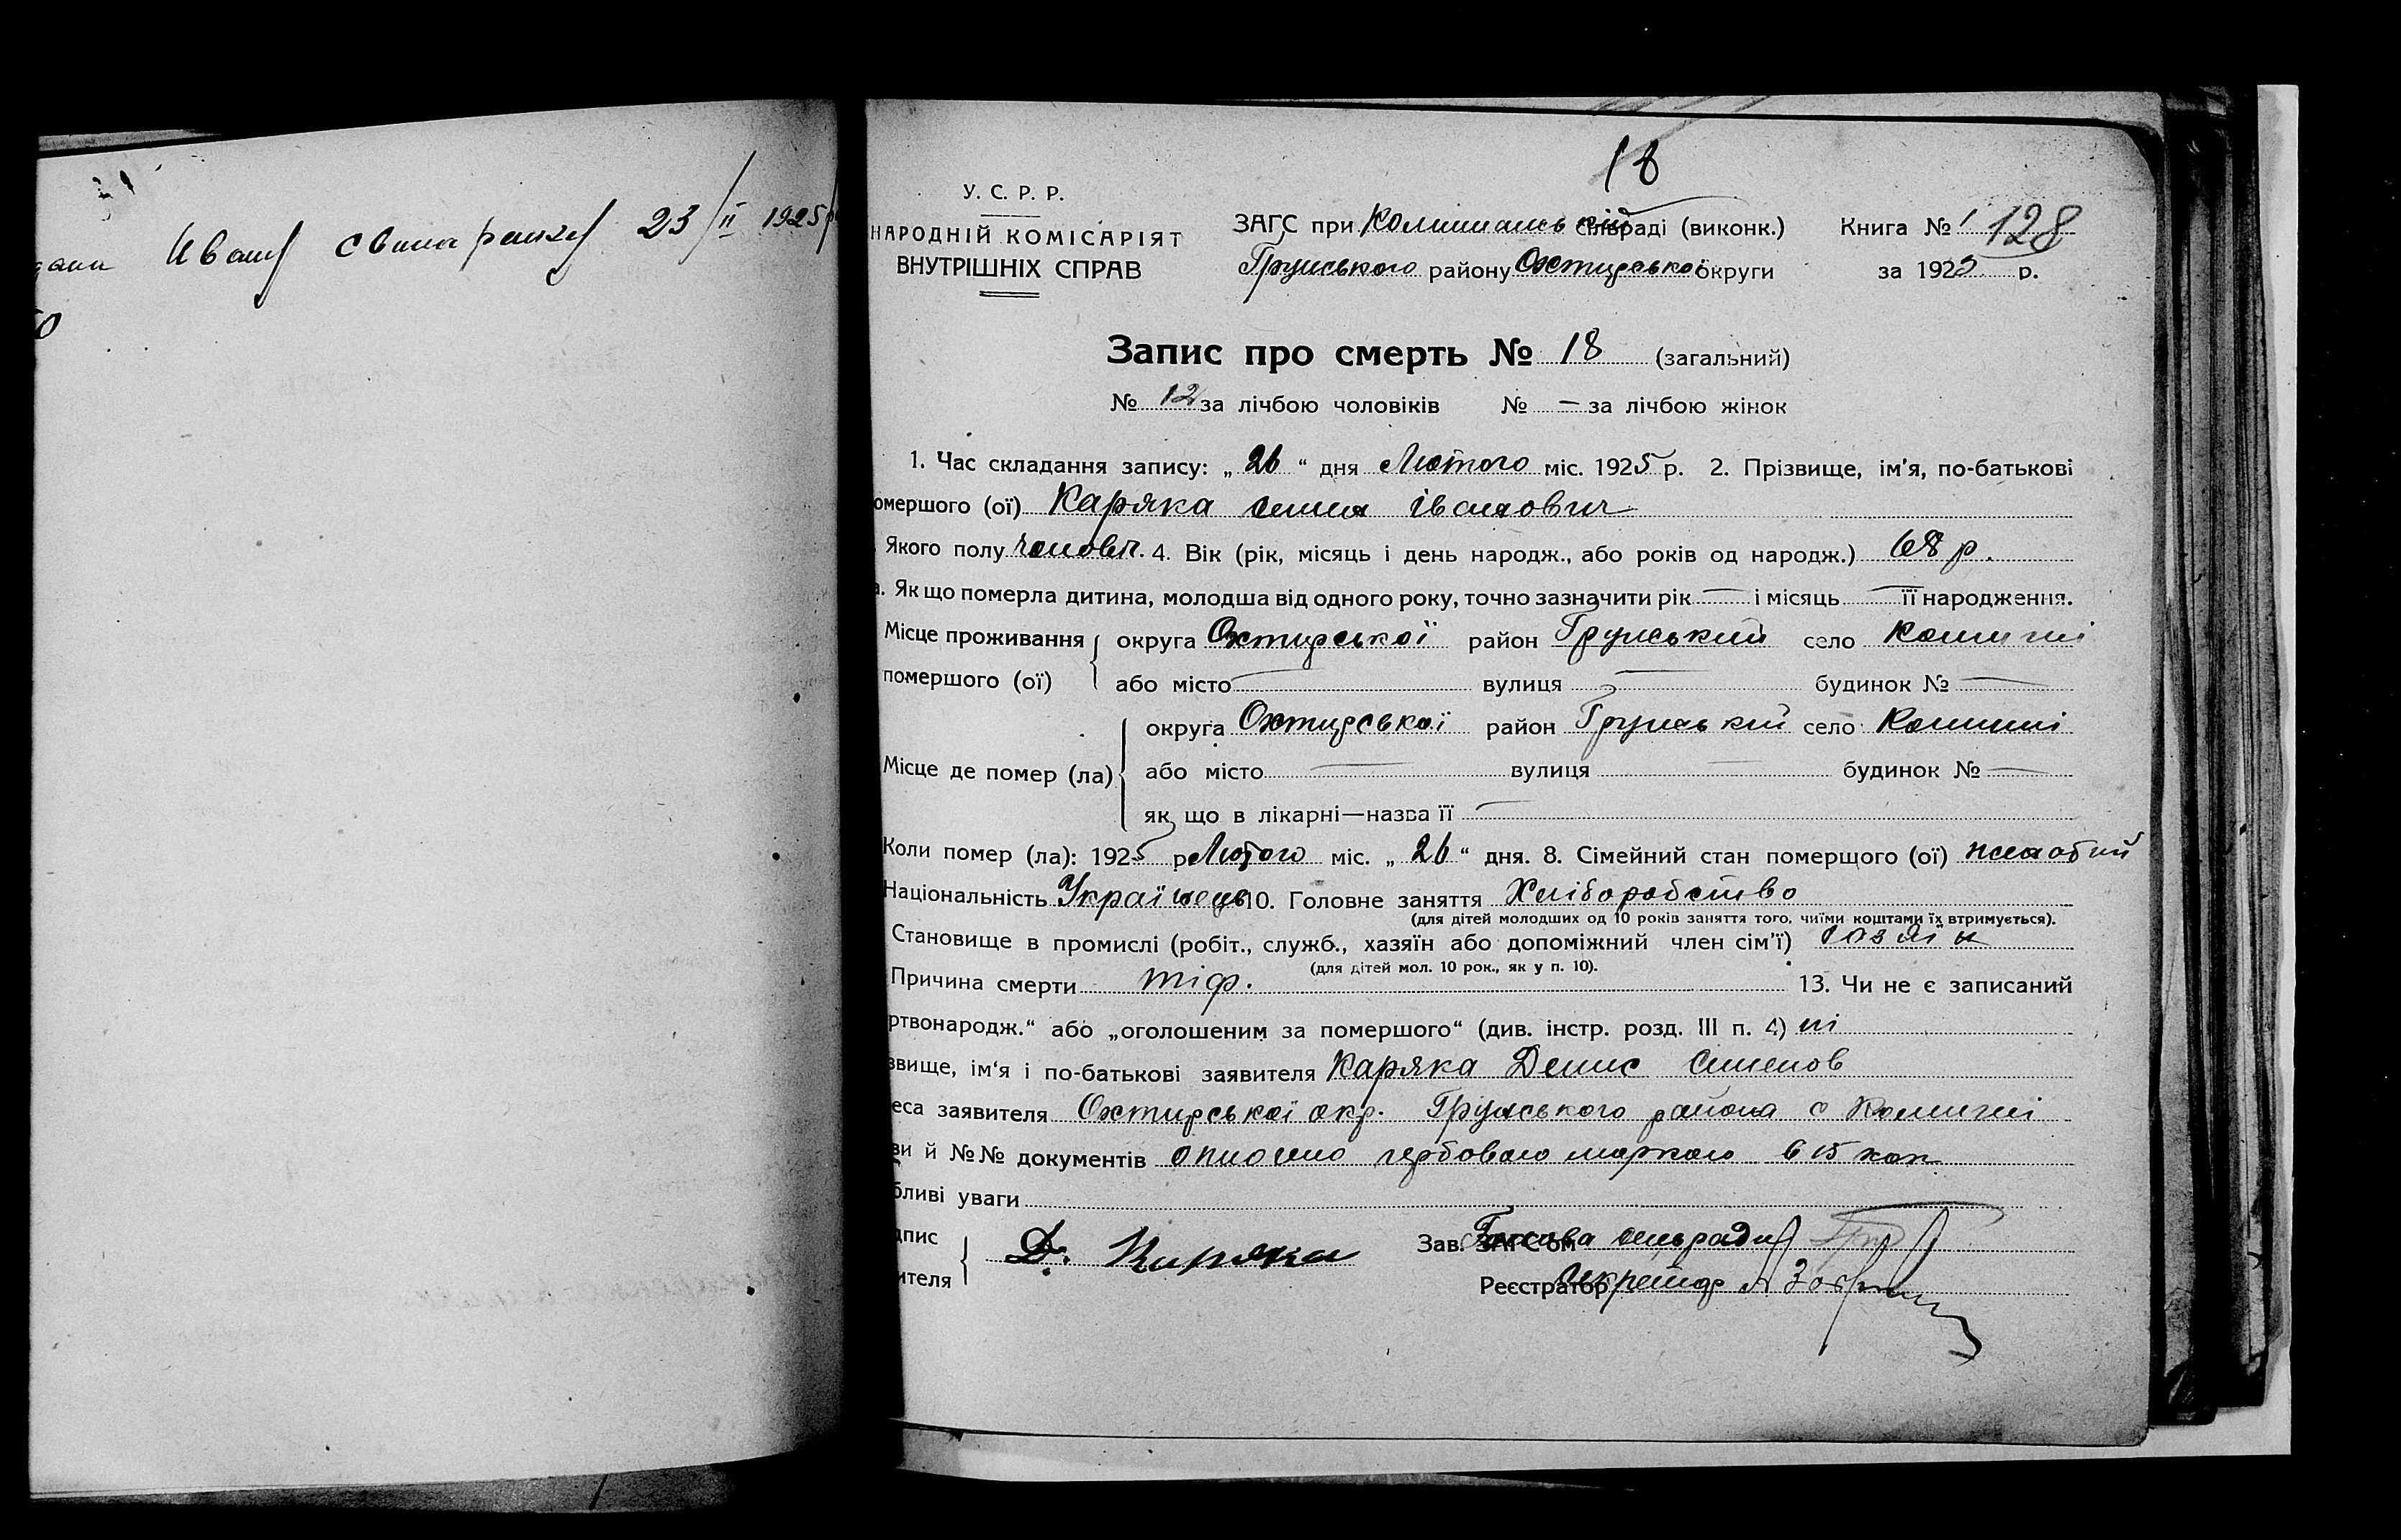 Иван Свинаренко 23/II 1925 р
18
У. С. Р. Р.
НАРОДНІЙ КОМІСАРІЯТ
ВНУТРІШНІХ СПРАВ
ЗАГС при сільраді (виконк.)
Грунського району Охтирської округи
Книга № 1 128
за 1925 р.
Запис про смерть № 18 (загальний)
№ 12 за лічбою чоловіків № — за лічбою жінок
1. Час складання запису: „ 26 “ дня Лютого міс. 1925 р. 2. Прізвище, ім'я, по-батькові
омершого (ої) Каряка іванович
Якого полу 4. Вік (рік, місяць і день народж., або років од народж.) 68 р.
а. Як що померла дитина, молодша від одного року, точно зазначити рік — і місяць — її народження.
Місце проживання
помершого (ої)
округа Охтирської район Грунський село Комиші
або місто — вулиця — будинок № —
Місце де помер (ла)
округа Охтирської район Грунській село Комиші
або місто — вулиця — будинок № —
як що в лікарні—назва її —
Коли помер (ла): 1925 р Лютого міс. „ 26 “ дня. 8. Сімейний стан померщого (ої)
Національність Українець 10. Головне заняття Хліборобство
(для дітей молодших од 10 років заняття того, чиїми коштами їх втримується).
Становище в промислі (робіт., служб., хазяїн або допоміжний член сім'ї) хазяїн
(для дітей мол. 10 рок., як у п. 10).
Причина смерти тіф. 13. Чи не є записаний
ртвонародж.“ або „оголошеним за помершого“ (див. інстр. розд. III п. 4) ні
звище, ім'я і по-батькові заявителя Каряка Денис
еса заявителя Охтирської окр. Грунського района с Комиші
ви й №№ документів гербовою маркою в 15 коп
бливі уваги
дпис
ителя
Д. Каряка
Зав. ЗАГС'ом Голова сільради
Реєстратор Секретар